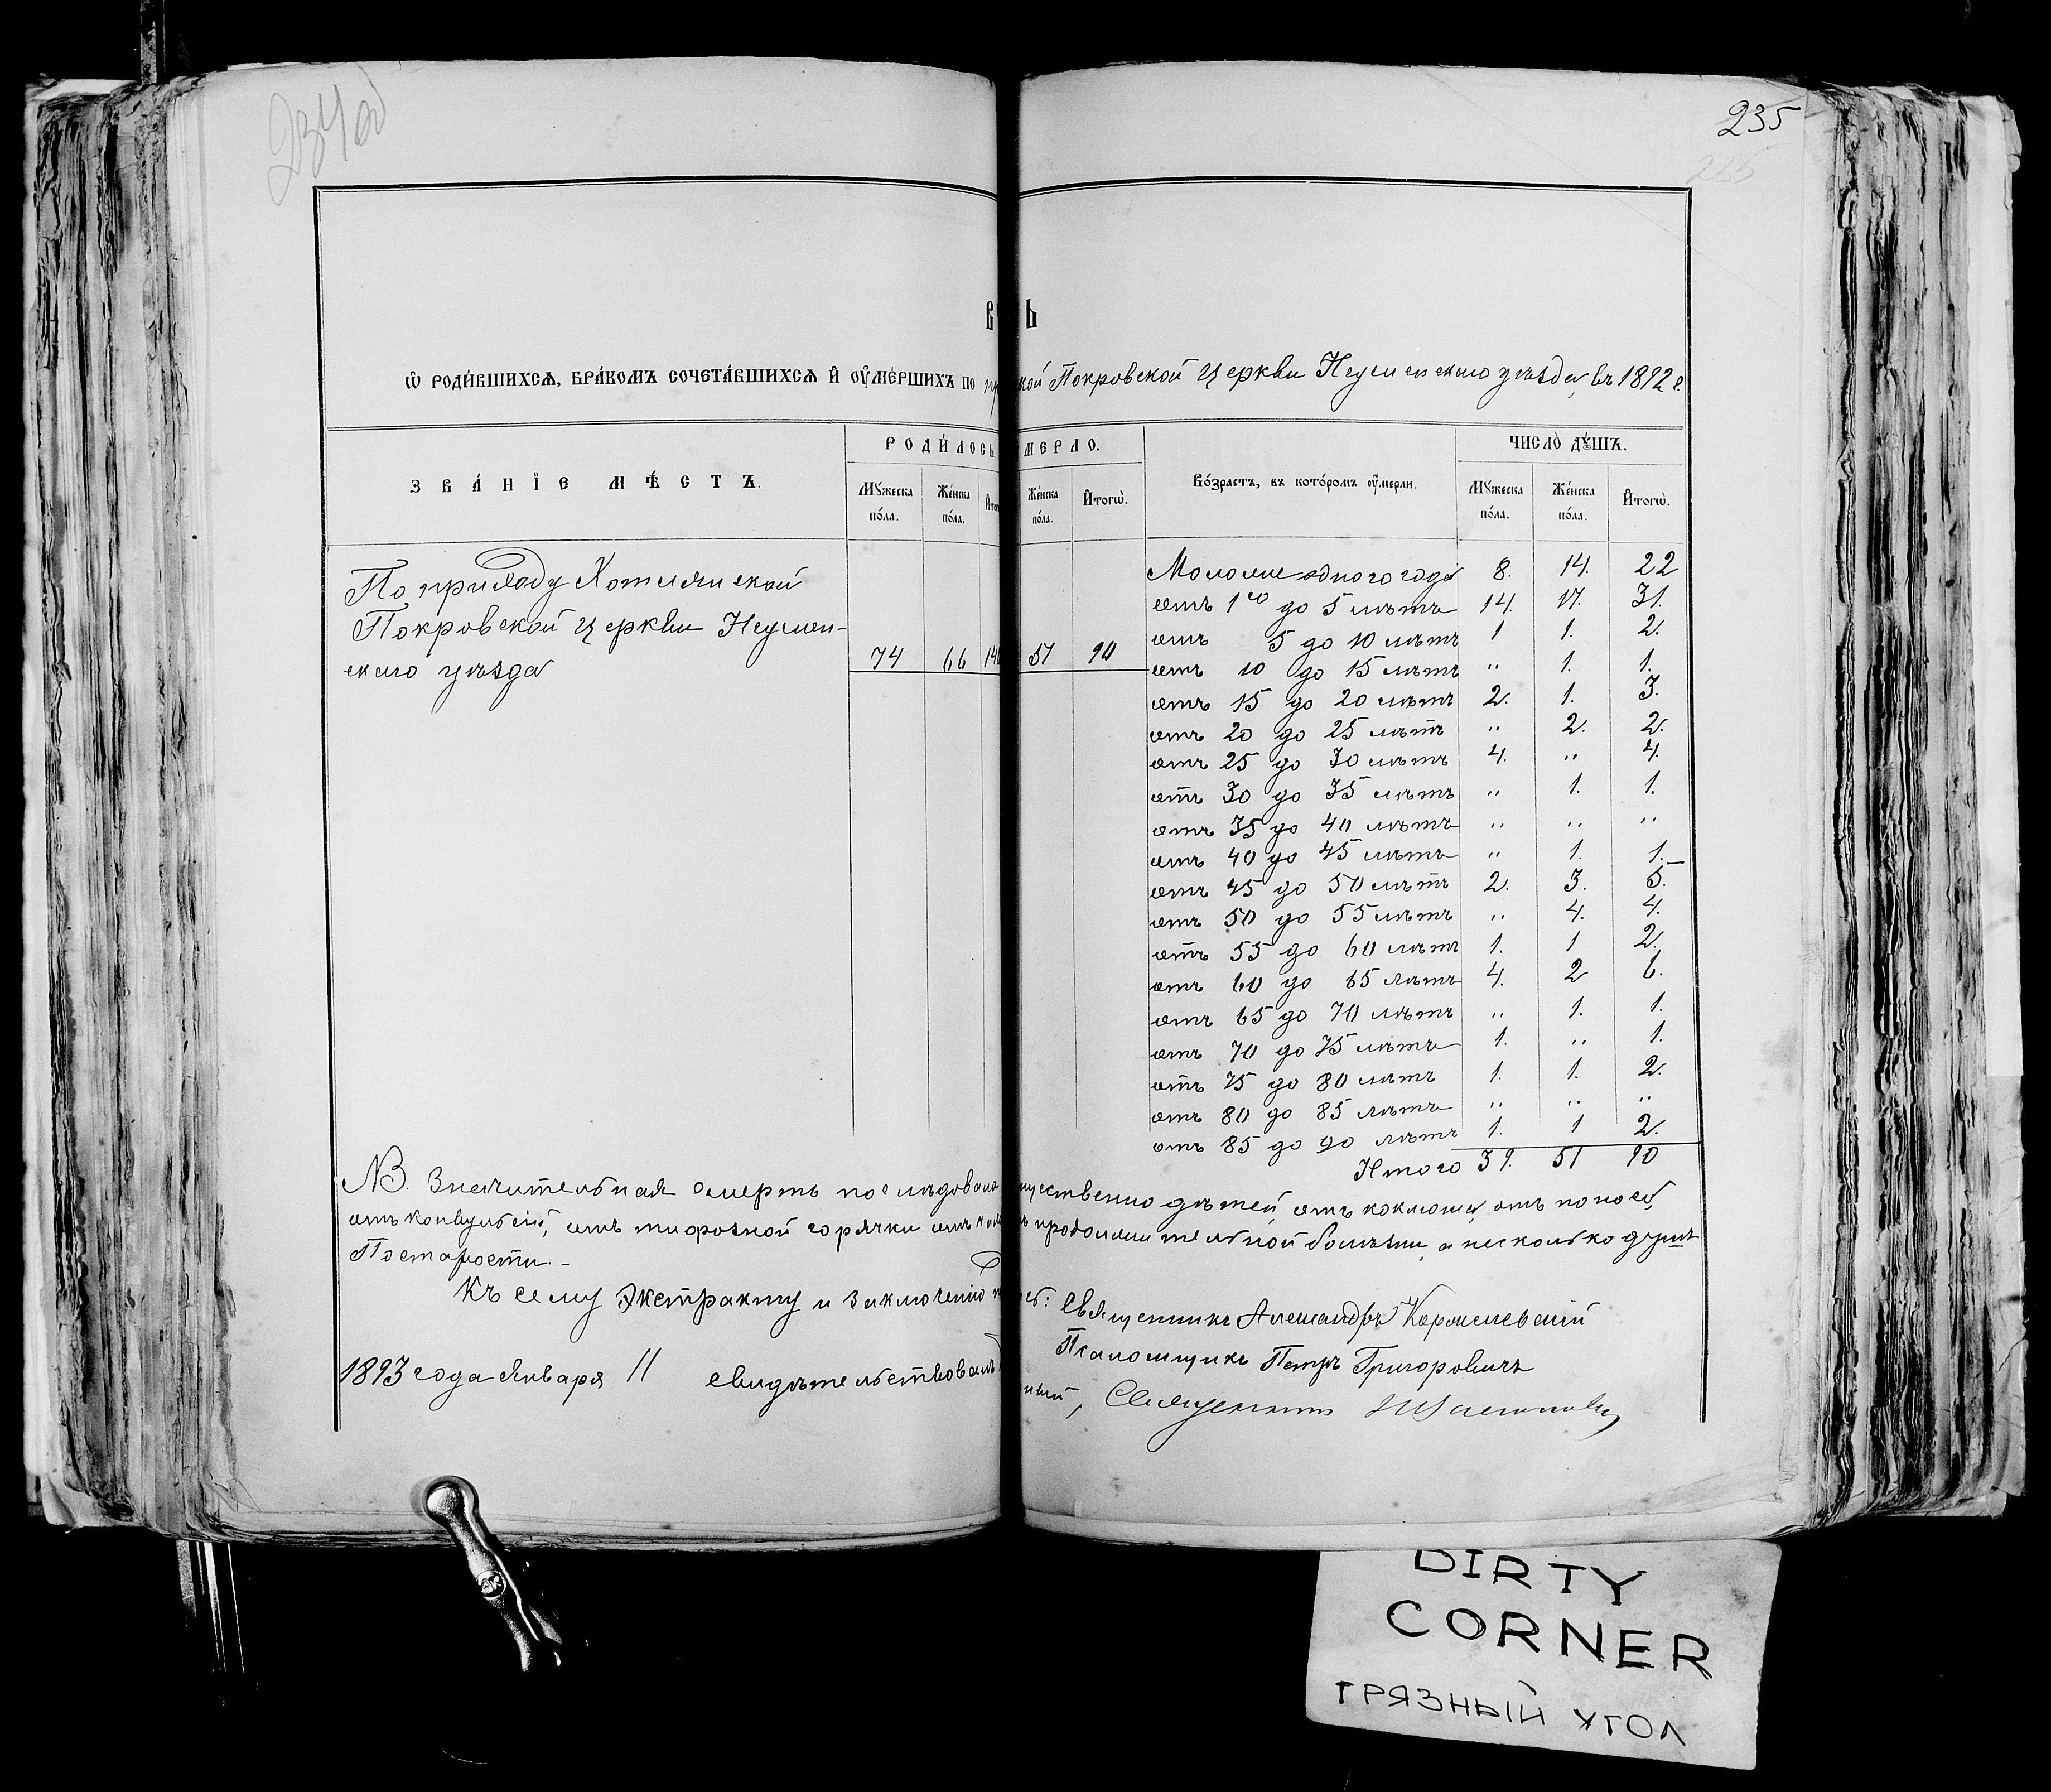 234об
235
Ѡ РОДИ́ВШИХСѦ, БРА́КОМЪ СОЧЕТА́ВШИХСѦ И҆ ОУ҆МЕ́РШИХЪ ПО
кой Покровской Церкви Игуменскаго уѣзда, въ 1892 г.
ЗВА́НІЕ МѢ́СТЪ.
РОДИ́ЛОСЬ
МЕРЛО.
Во́зрастъ, въ кото́ромъ оу҆́мерли.
ЧИСЛО̀ ДꙊ́ШЪ.
Мꙋжеска по́ла.
Же́нска по́ла.
Же́нска по́ла.
И҆тогѡ̀.
Мꙋжеска по́ла.
Же́нска по́ла.
И҆тогѡ̀.
По приходу Хотлянской
Покровской Церкви Игумен-
скаго уѣзда
74 66 140 51 90
Моложе одного года 8. 14. 22
отъ 1го до 5 лѣтъ 14. 17. 31.
отъ 5 до 10 лѣтъ 1 1. 2.
отъ 10 до 15 лѣтъ " 1. 1.
отъ 15 до 20 лѣтъ 2. 1. 3.
отъ 20 до 25 лѣтъ " 2. 2.
отъ 25 до 30 лѣтъ 4. " 4.
отъ 30 до 35 лѣтъ " 1. 1.
отъ 35 до 40 лѣтъ " " "
отъ 40 до 45 лѣтъ " 1. 1.
отъ 45 до 50 лѣтъ 2. 3. 5.
отъ 50 до 55 лѣтъ " 4. 4.
отъ 55 до 60 лѣтъ 1. 1 2.
отъ 60 до 65 лѣтъ 4. 2 6.
отъ 65 до 70 лѣтъ " 1. 1.
отъ 70 до 75 лѣтъ 1. " 1.
отъ 75 до 80 лѣтъ 1. 1. 2.
отъ 80 до 85 лѣтъ " " "
отъ 85 до 90 лѣтъ 1. 1 2.
Итого 39. 51 90
NB. Значительная смерть послѣдовала дѣтей, отъ коклюша, отъ поноса,
отъ конвульсій, отъ тифозной горячки отъ продолжительной болѣзни, а нѣсколько душъ
По старости. –
Къ сему экстракту и заключенію Священникъ Александръ
Псаломщикъ Петръ Григоровичъ
1893 года Января 11 свидѣтельствовалъ
Священникъ
DIRTY
CORNER
ГРЯЗНЫЙ УГОЛ